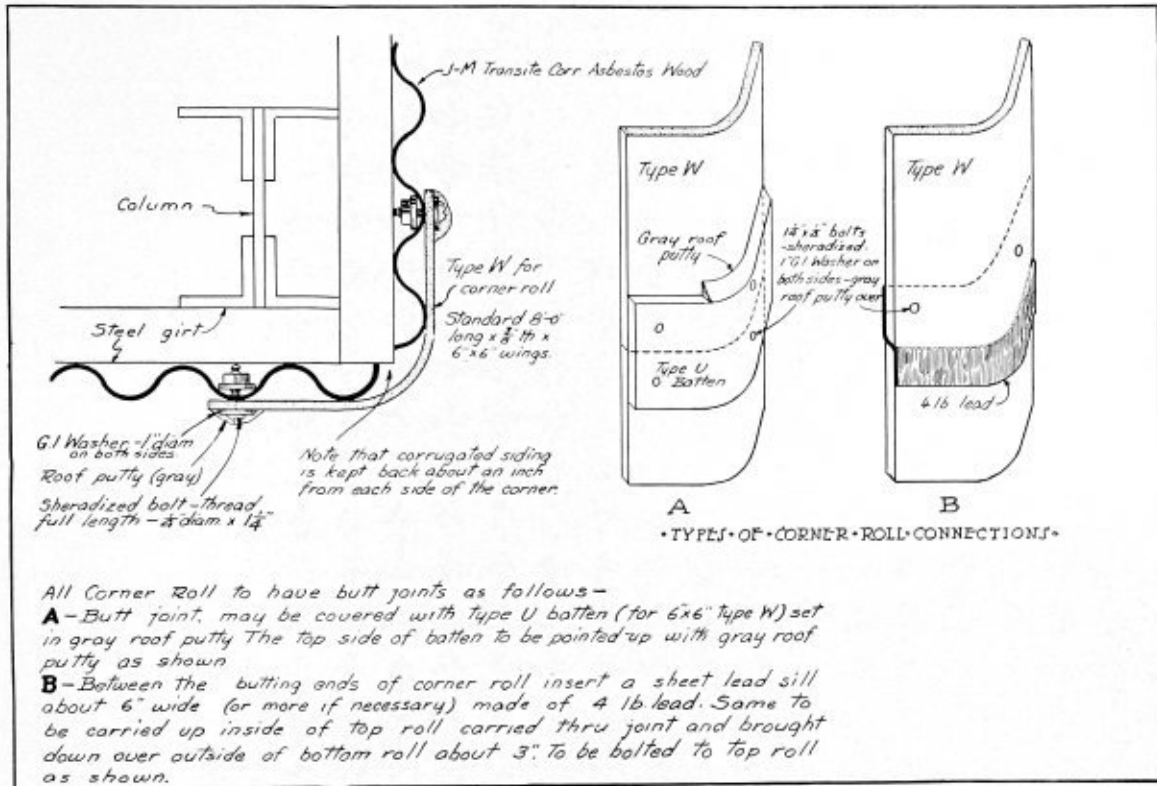 J-M Transite Corr Asbestos Wood
Column
Steel girt
Type W for
corner roll
Standard 8'-0"
long x 3/8" th x
6" x 6" wings.
G.I Washer -1" diam
on both sides.
Roof putty (gray)
Sheradized bolt-thread
full length - diam x 1 1/4"
Note that corrugated siding
is kept back about an inch
from each side of the corner.
Type W
Gray roof
putty
Type U
Batten
A
bolts
-sheradized.
1" G.I Washer on
both sides-gray
roof putty over
Type W
4 lb lead
B
•TYPES•OF•CORNER•ROLL•CONNECTIONS•
All Corner Roll to have butt joints as follows-
A-Butt joint, may be covered with Type U batten (for 6"x6" Type W) set
in gray roof putty The top side of batten to be pointed-up with gray roof
putty as shown
B-Between the butting ends of corner roll insert a sheet lead sill
about 6" wide (or more if necessary) made of 4 lb. lead. Same to
be carried up inside of top roll carried thru joint and brought
down over outside of bottom roll about 3". To be bolted to top roll
as shown.